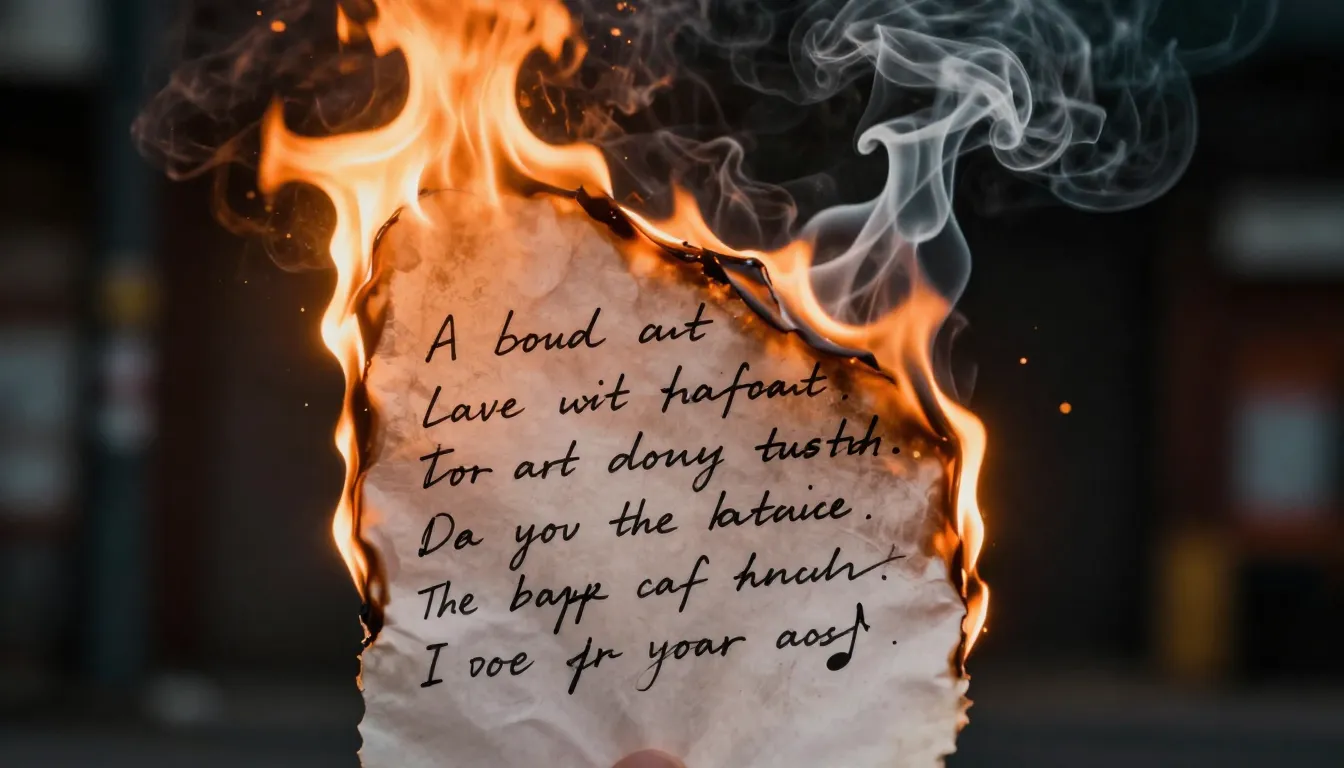 A boud art
Lave wit hafoant.
Tor art douy tustth.
Da you the latuice.
The bapp caf hnculv.
I ooe fr yoar aos